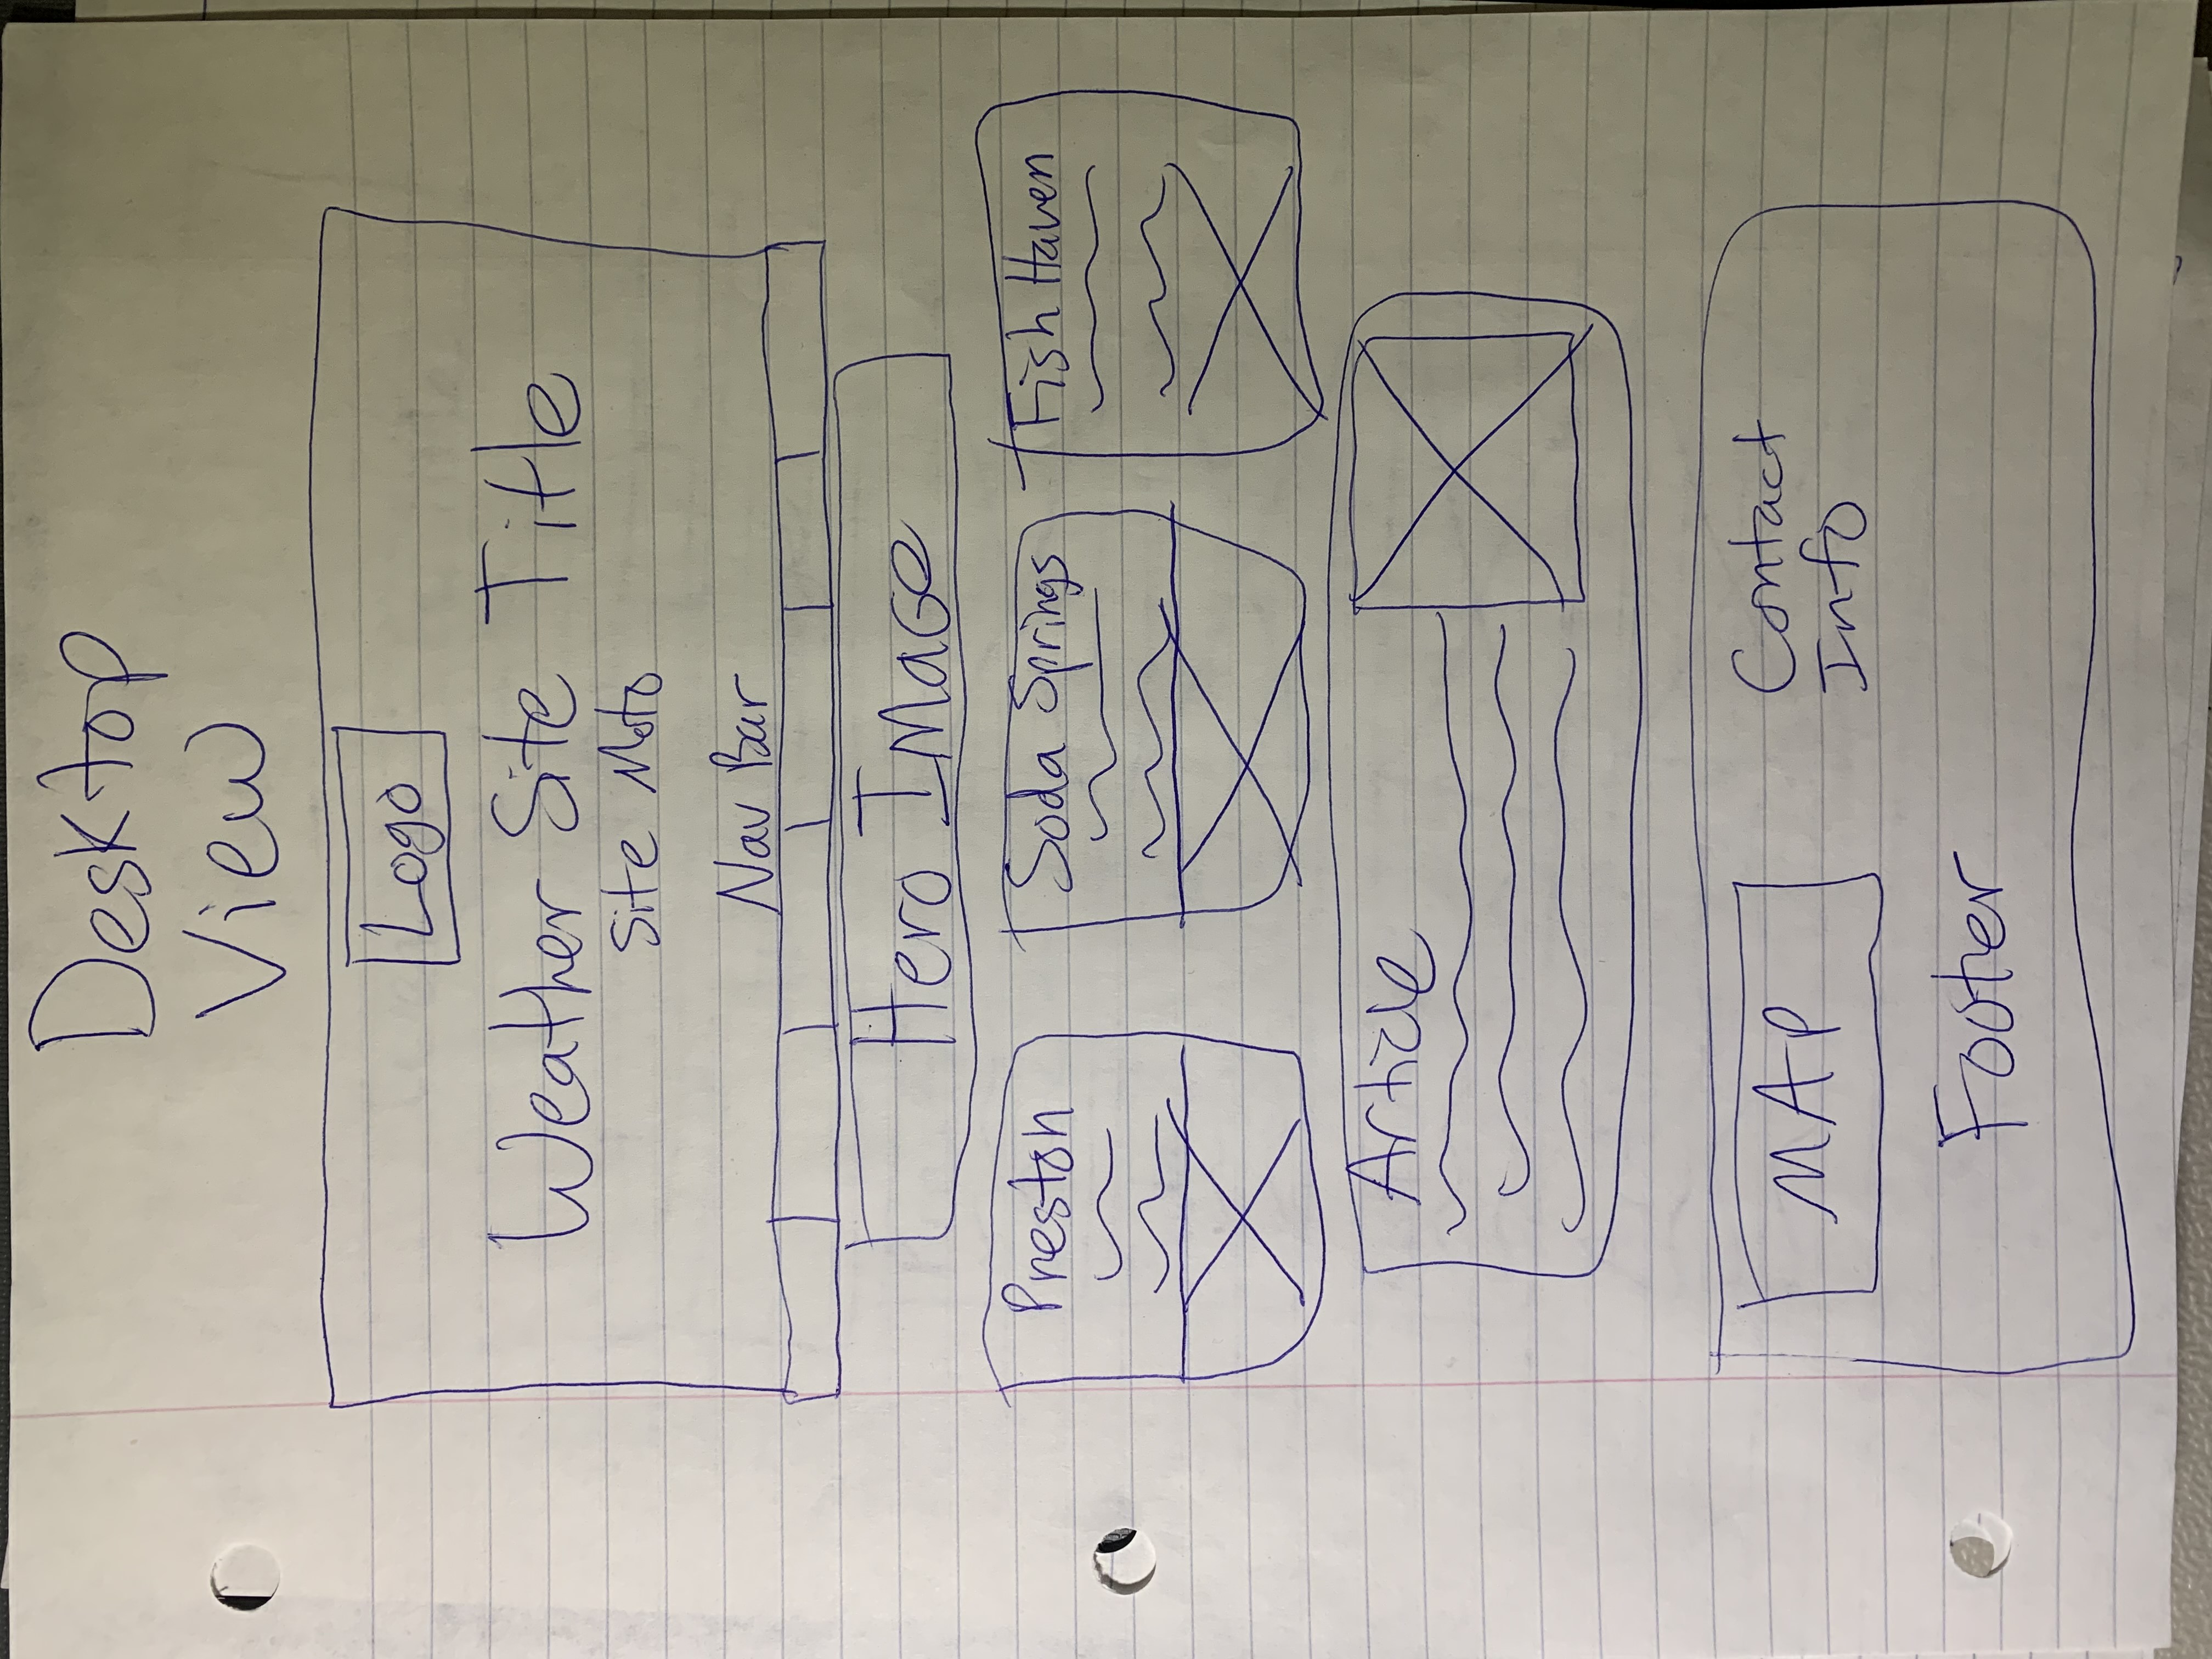 Desktop
View
Logo
Weather Site Title
Site Moto
Nav Bar
Hero Image
Preston
Soda Springs
Fish Haven
Article
MAP
Contact
Info
Footer